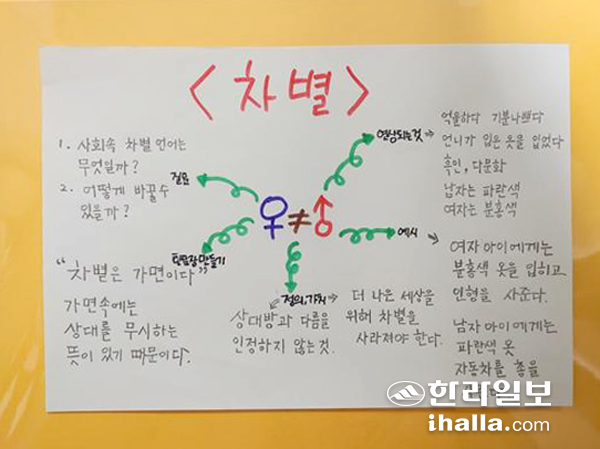 <차별>
1. 사회속 차별 언어는
무엇일까?
2. 어떻게 바꿀수
있을까?
질문
연상되는것
억울하다 기분나쁘다
언니가 입은 옷을 입었다
흑인, 다문화
남자는 파란색
여자는 분홍색
♀≠♂
예시
여자 아이에게는
분홍색 옷을 입히고
인형을 사준다.
남자 아이에게는
파란색 옷
자동차를
"차별은 가면이다"
가면속에는
상대를 무시하는
뜻이 있기 때문이다.
정의, 가치
상대방과 다름을
인정하지 않는것.
더 나은 세상을
위해 차별을
사라져야 한다.
한라일보
ihalla.com